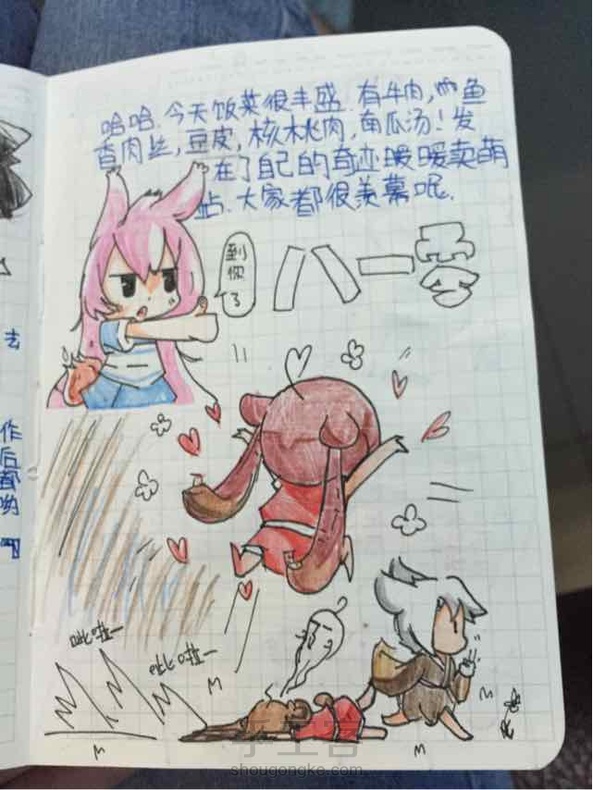 哈哈.今天饭菜很丰盛.有牛肉,鱼
香肉丝,豆皮,核桃肉,南瓜汤!发
在了自己的奇迹暖暖卖萌
站.大家都很羡慕呢.
到你了
八一零
去
作
后
都
哟
呲啦—
呲啦—
手工客
shougongke.com